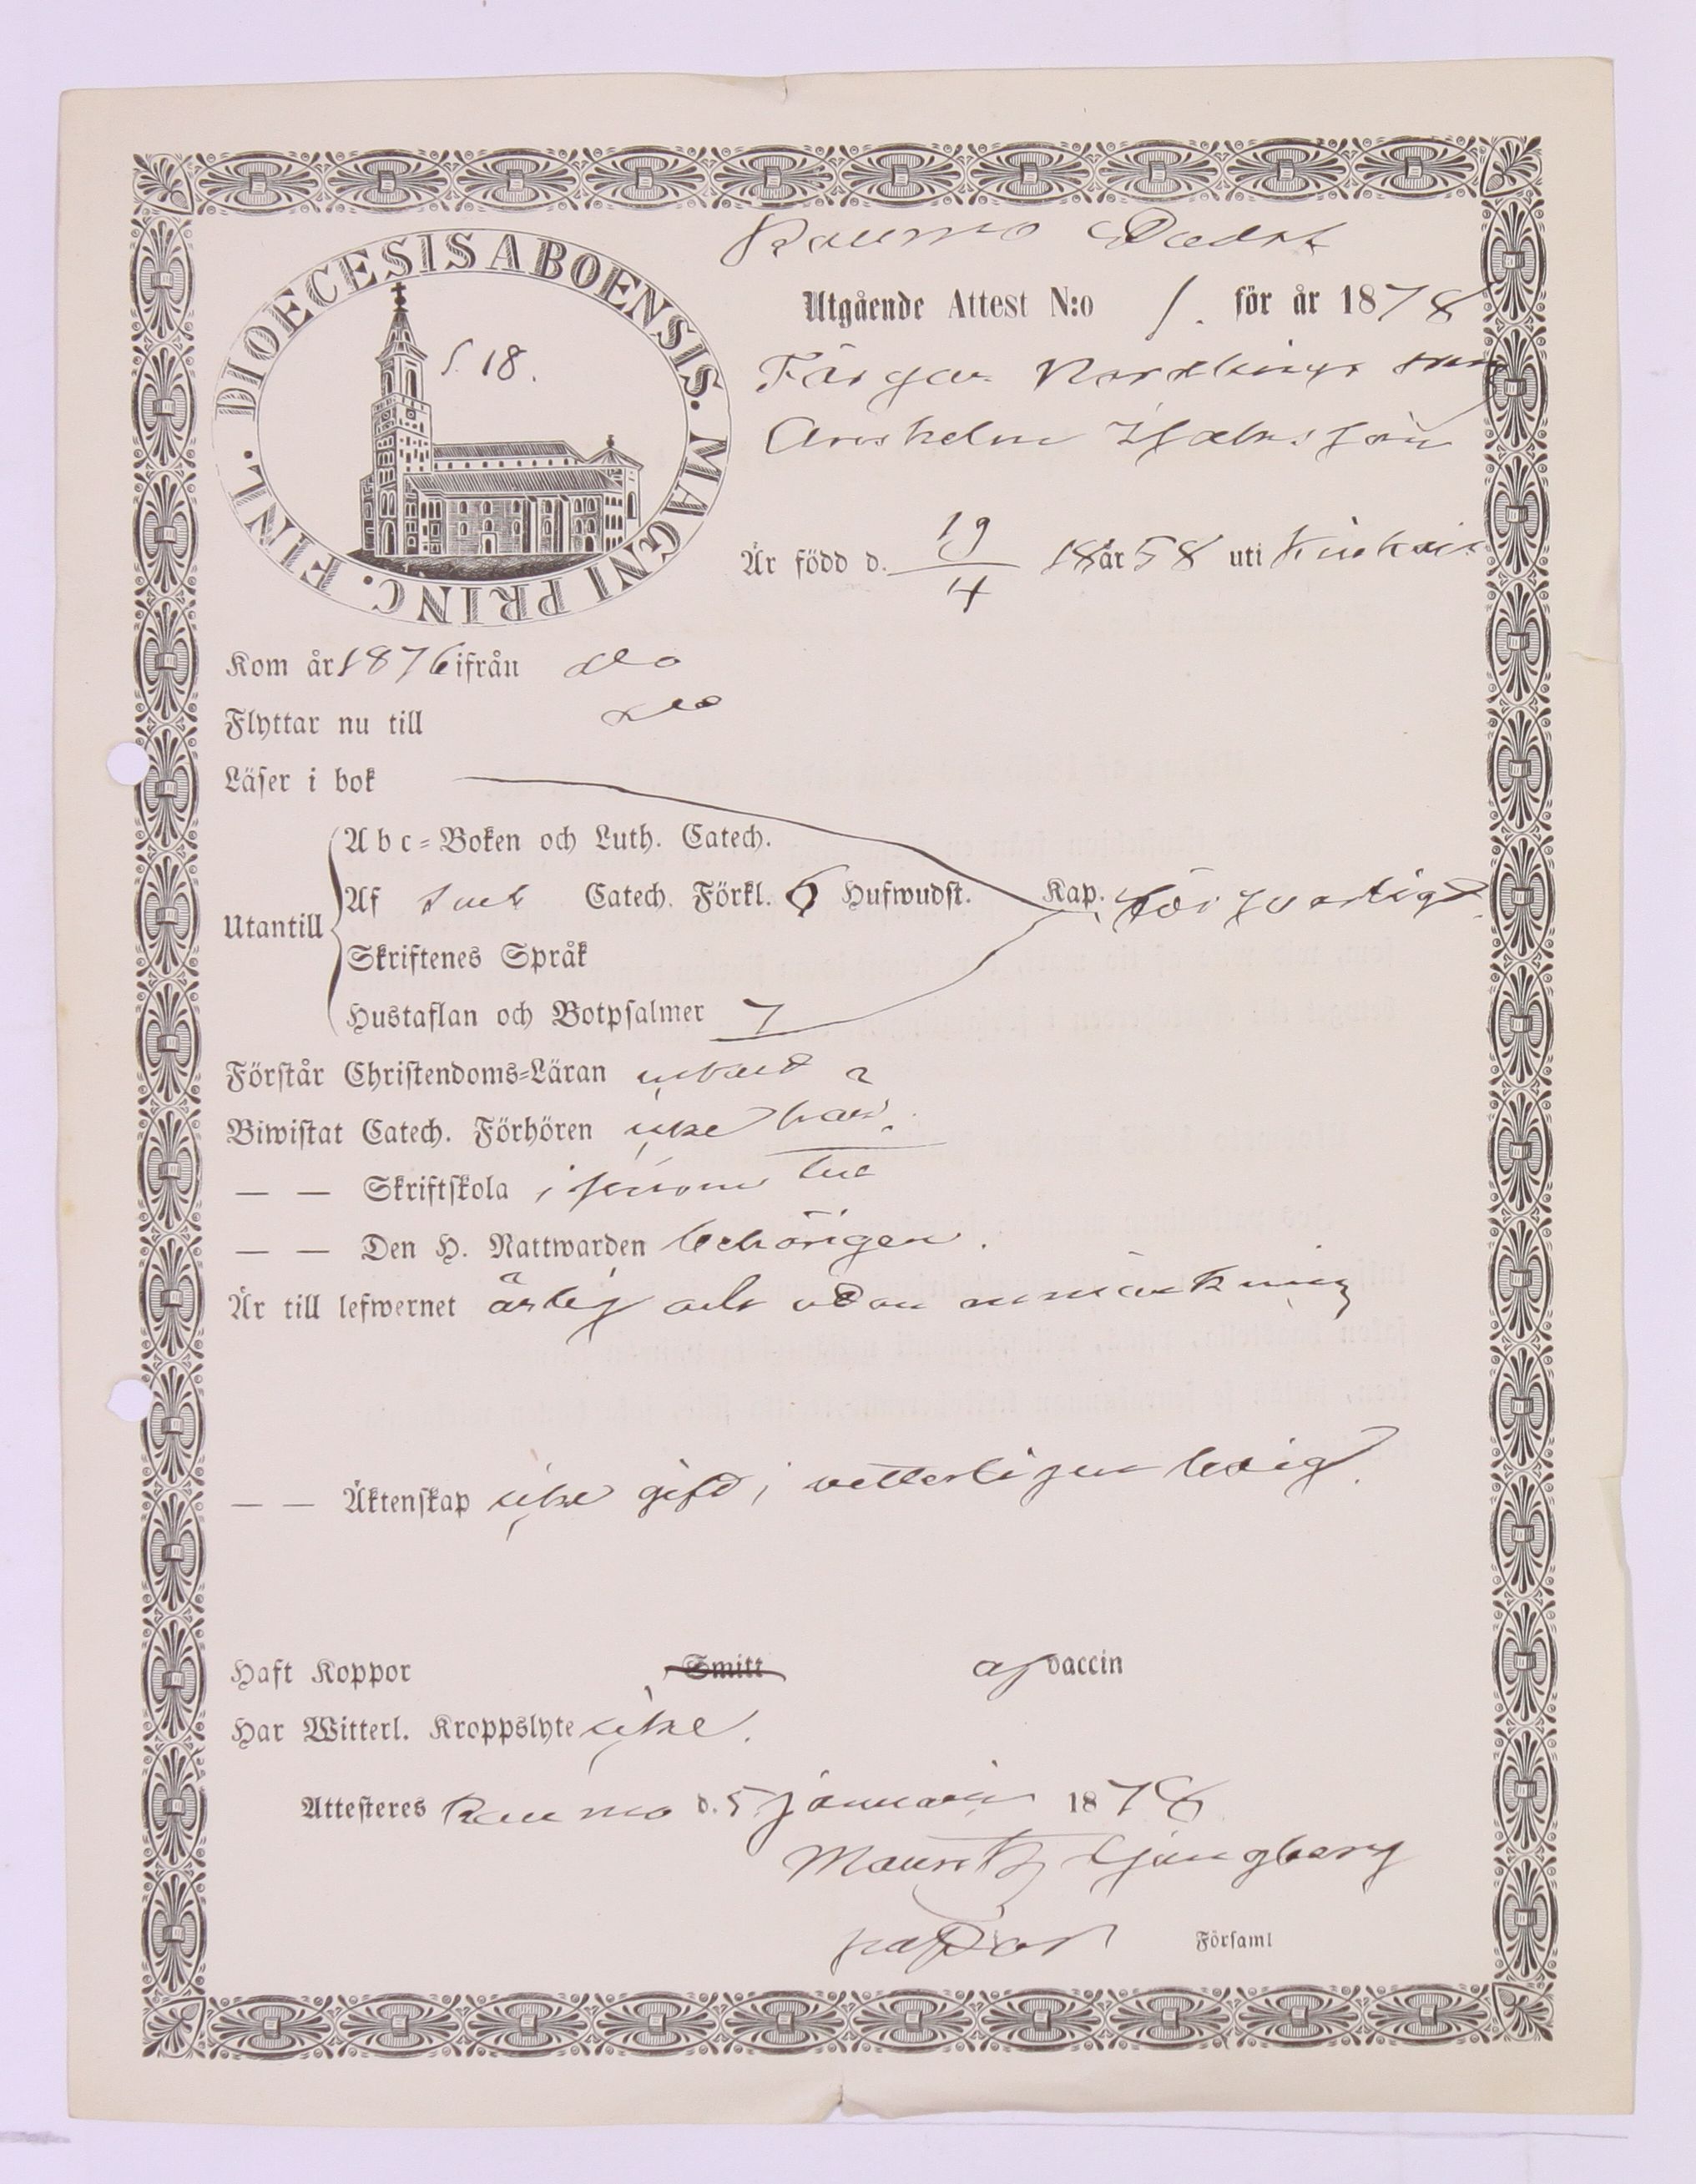 DIOECESIS ABOENSIS. MAGNI PRINC. FINL.
S. 18.
Raumo Stadt
Utgående Attest N:o 1. för år 1878
Färgar Nordlings
Är född d. 19/4 18 år 58 uti
Kom år 1876 ifrån do
Flyttar nu till do
Läser i bok
Utantill
Abc-Boken och Luth. Catech.
Af Catech. Förkl. 6 Hufwudst. Kap. försvarligt
Skriftenes Språk
Hustaflan och Botpsalmer 7
Förstår Christendoms-Läran
Biwistat Catech. Förhören icke här.
— — Skriftskola i
— — Den H. Nattwarden behörigen.
Är till lefwernet ärlig och utan anmärkning
— — Äktenskap icke gift, vetterligen ledig.
Haft Koppor Smitt af vaccin
Har Witterl. Kroppslyte icke.
Attesteres Raumo d. 5 januari 1878
Mauritz Ljungberg
pastor Församl